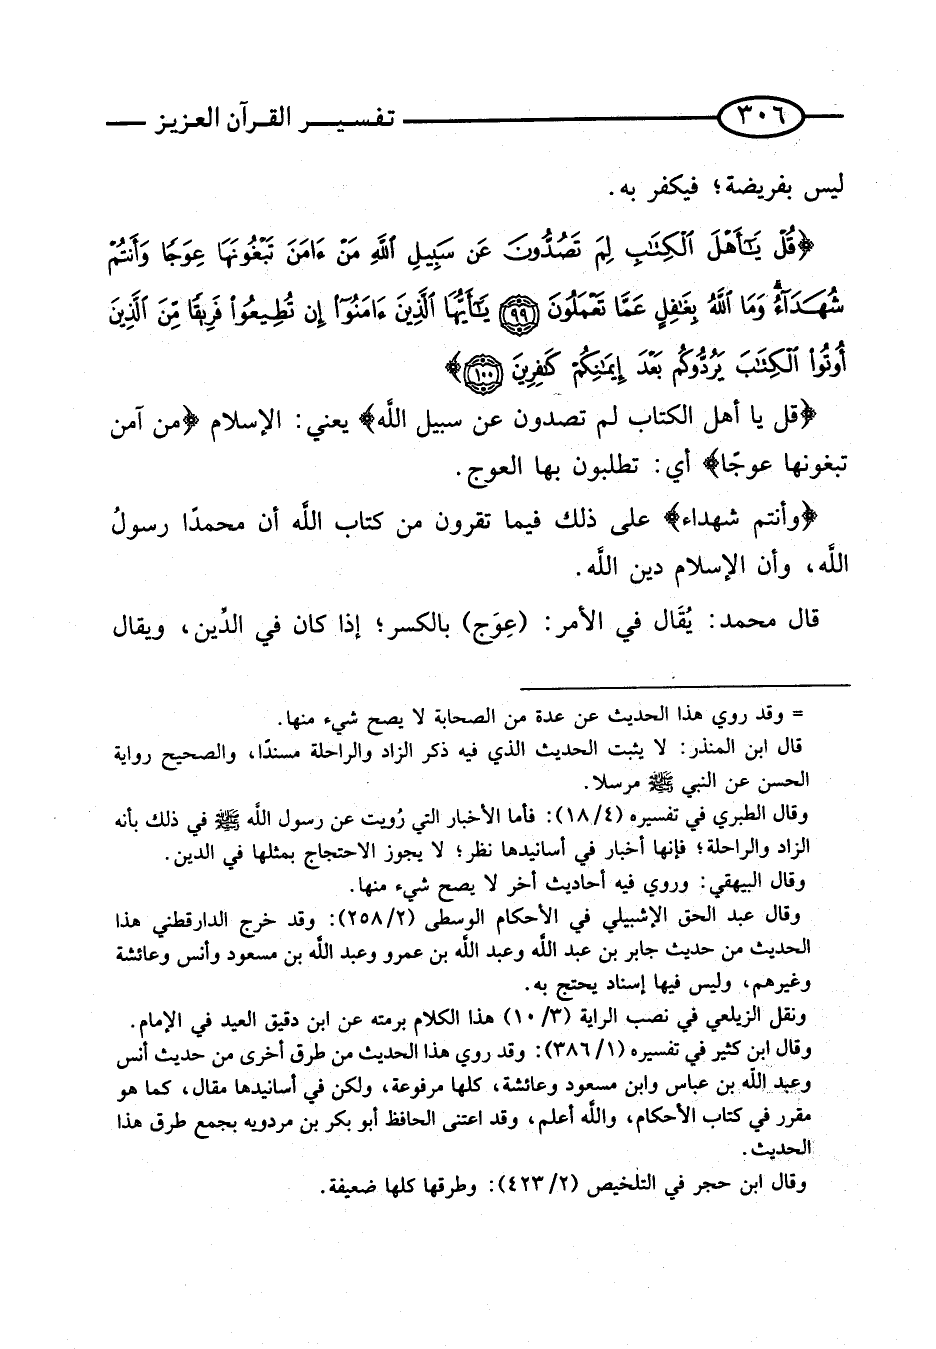 ٣٠٦ تفسير القرآن العزيز
ليس بفريضة؛ فيكفر به.
﴿قُلْ يَـٰٓأَهْلَ ٱلْكِتَـٰبِ لِمَ تَصُدُّونَ عَن سَبِيلِ ٱللَّهِ مَنْ ءَامَنَ تَبْغُونَهَا عِوَجًا وَأَنتُمْ
شُهَدَآءُ ۗ وَمَا ٱللَّهُ بِغَـٰفِلٍ عَمَّا تَعْمَلُونَ ﴿٩٩﴾ يَـٰٓأَيُّهَا ٱلَّذِينَ ءَامَنُوٓا۟ إِن تُطِيعُوا۟ فَرِيقًا مِّنَ ٱلَّذِينَ
أُوتُوا۟ ٱلْكِتَـٰبَ يَرُدُّوكُم بَعْدَ إِيمَـٰنِكُمْ كَـٰفِرِينَ ﴿١٠٠﴾﴾
﴿قل يا أهل الكتاب لم تصدون عن سبيل اللَّه﴾ يعني: الإسلام ﴿من آمن
تبغونها عوجًا﴾ أي: تطلبون بها العوج.
﴿وأنتم شهداء﴾ على ذلك فيما تقرون من كتاب اللَّه أن محمدًا رسولُ
اللَّه، وأن الإسلام دين اللَّه.
قال محمد: يُقَال في الأمر: (عِوَج) بالكسر؛ إذا كان في الدِّين، ويقال
= وقد روي هذا الحديث عن عدة من الصحابة لا يصح شيء منها.
قال ابن المنذر: لا يثبت الحديث الذي فيه ذكر الزاد والراحلة مسندًا، والصحيح رواية
الحسن عن النبي ﷺ مرسلا.
وقال الطبري في تفسيره (٤/ ١٨): فأما الأخبار التي رُويت عن رسول اللَّه ﷺ في ذلك بأنه
الزاد والراحلة؛ فإنها أخبار في أسانيدها نظر؛ لا يجوز الاحتجاج بمثلها في الدين.
وقال البيهقي: وروي فيه أحاديث أخر لا يصح شيء منها.
وقال عبد الحق الإشبيلي في الأحكام الوسطى (٢/ ٢٥٨): وقد خرج الدارقطني هذا
الحديث من حديث جابر بن عبد اللَّه وعبد اللَّه بن عمرو وعبد اللَّه بن مسعود وأنس وعائشة
وغيرهم، وليس فيها إسناد يحتج به.
ونقل الزيلعي في نصب الراية (٣/ ١٠) هذا الكلام برمته عن ابن دقيق العيد في الإمام.
وقال ابن كثير في تفسيره (١/ ٣٨٦): وقد روي هذا الحديث من طرق أخرى من حديث أنس
وعبد اللَّه بن عباس وابن مسعود وعائشة، كلها مرفوعة، ولكن في أسانيدها مقال، كما هو
مقرر في كتاب الأحكام، واللَّه أعلم، وقد اعتنى الحافظ أبو بكر بن مردويه بجمع طرق هذا
الحديث.
وقال ابن حجر في التلخيص (٢/ ٤٢٣): وطرقها كلها ضعيفة.